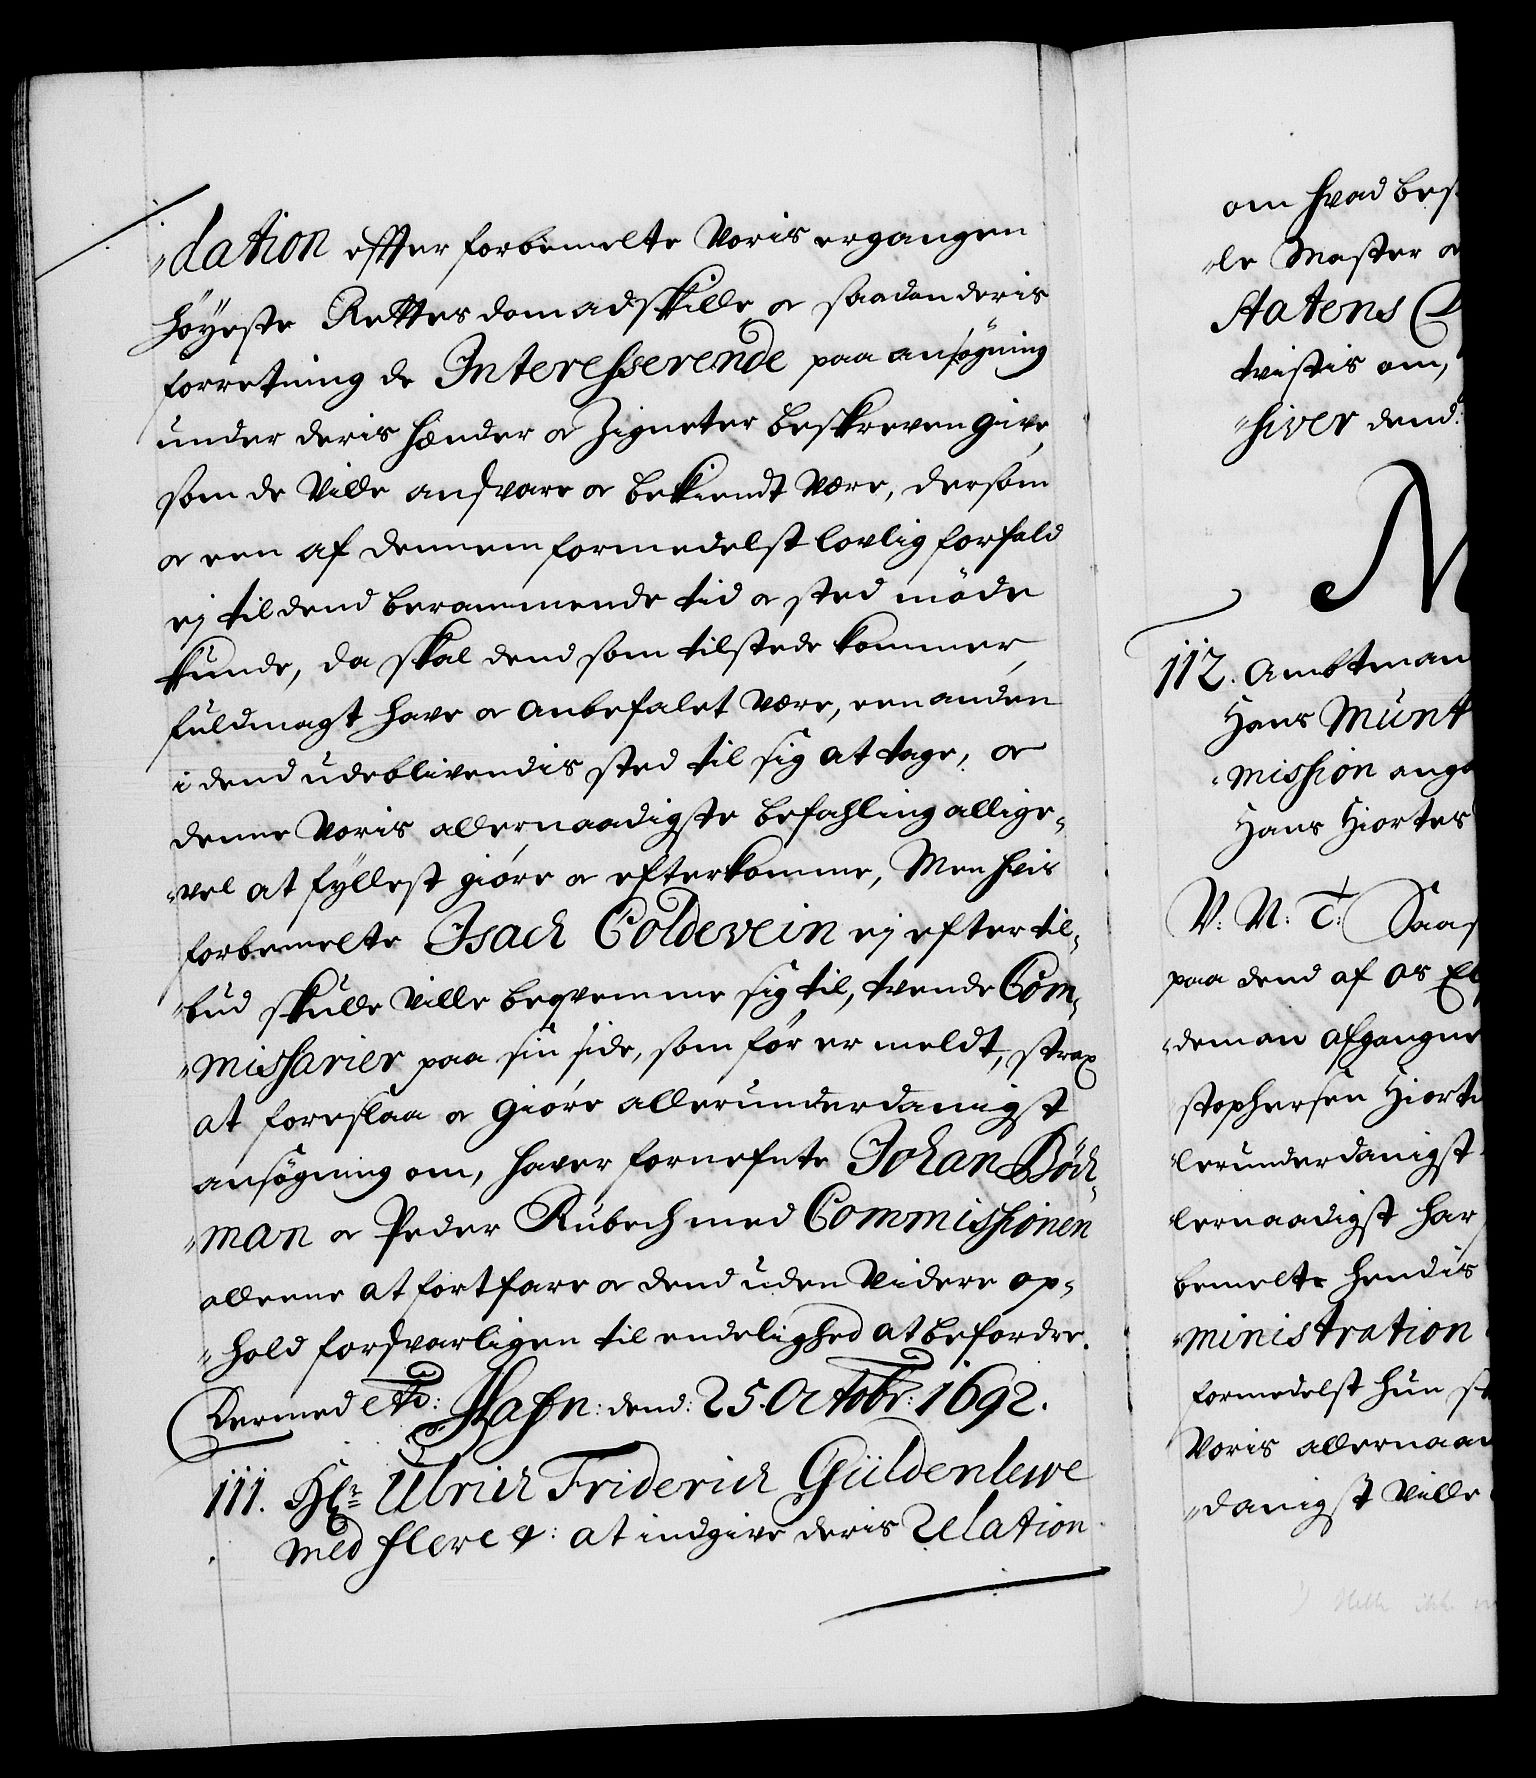 "dation effter forbemelte Voris ergangen
høyeste Rettes dom adskille oc saadan deris
forretning de Interesserende paa ansøgning
under deris hænder oc Zigneter beskreven give,
som de Ville ansvare oc bekiendt være, dersom
oc een af dennem formedelst lovlig forfald
ej til dend berammende tid oc sted møde
kunde, da skal dend som tilstede kommer,
fuldmagt have oc anbefalet være, een anden
i dend udeblivendis sted til sig at tage, oc
denne Voris allernaadigste befahling allige-
"vel at fyllest giøre oc efterkomme, Men hvis
forbemelte Isach Coldevein ej efter til-
"bud skulle Ville beqvemme sig til, tvende Com-
"missarier paa sin side, som før er meldt, strax
at foreslaa oc giøre allerunderdanigst
ansøgning om, haver fornefnte Johan Böch-
"man oc Peder Rubech med Commissionen
alleene at fortfare oc dend uden Videre op-
"hold forsvarligen til endelighed at befordre.
Dermed etc: Hafn: dend: 25. Octobr: 1692.
111. Hr. Ulrich Friderich Güldenlewe
med flere &: at indgive deris Relation
om hvad bes
"le Master oc
Statens
tvistis om,
"hiver dend:
M
112. Ambtman
Hans Munt
"mission anga
Hans Hiortes
V. N. T: Saas
paa dend af os El
"deman afgangne
stophersen Hiort
"lerunderdanigst
"lernaadigst har
bemelte hendis
"ministration
formedelst hun st
Voris allernaa
"danigst Ville